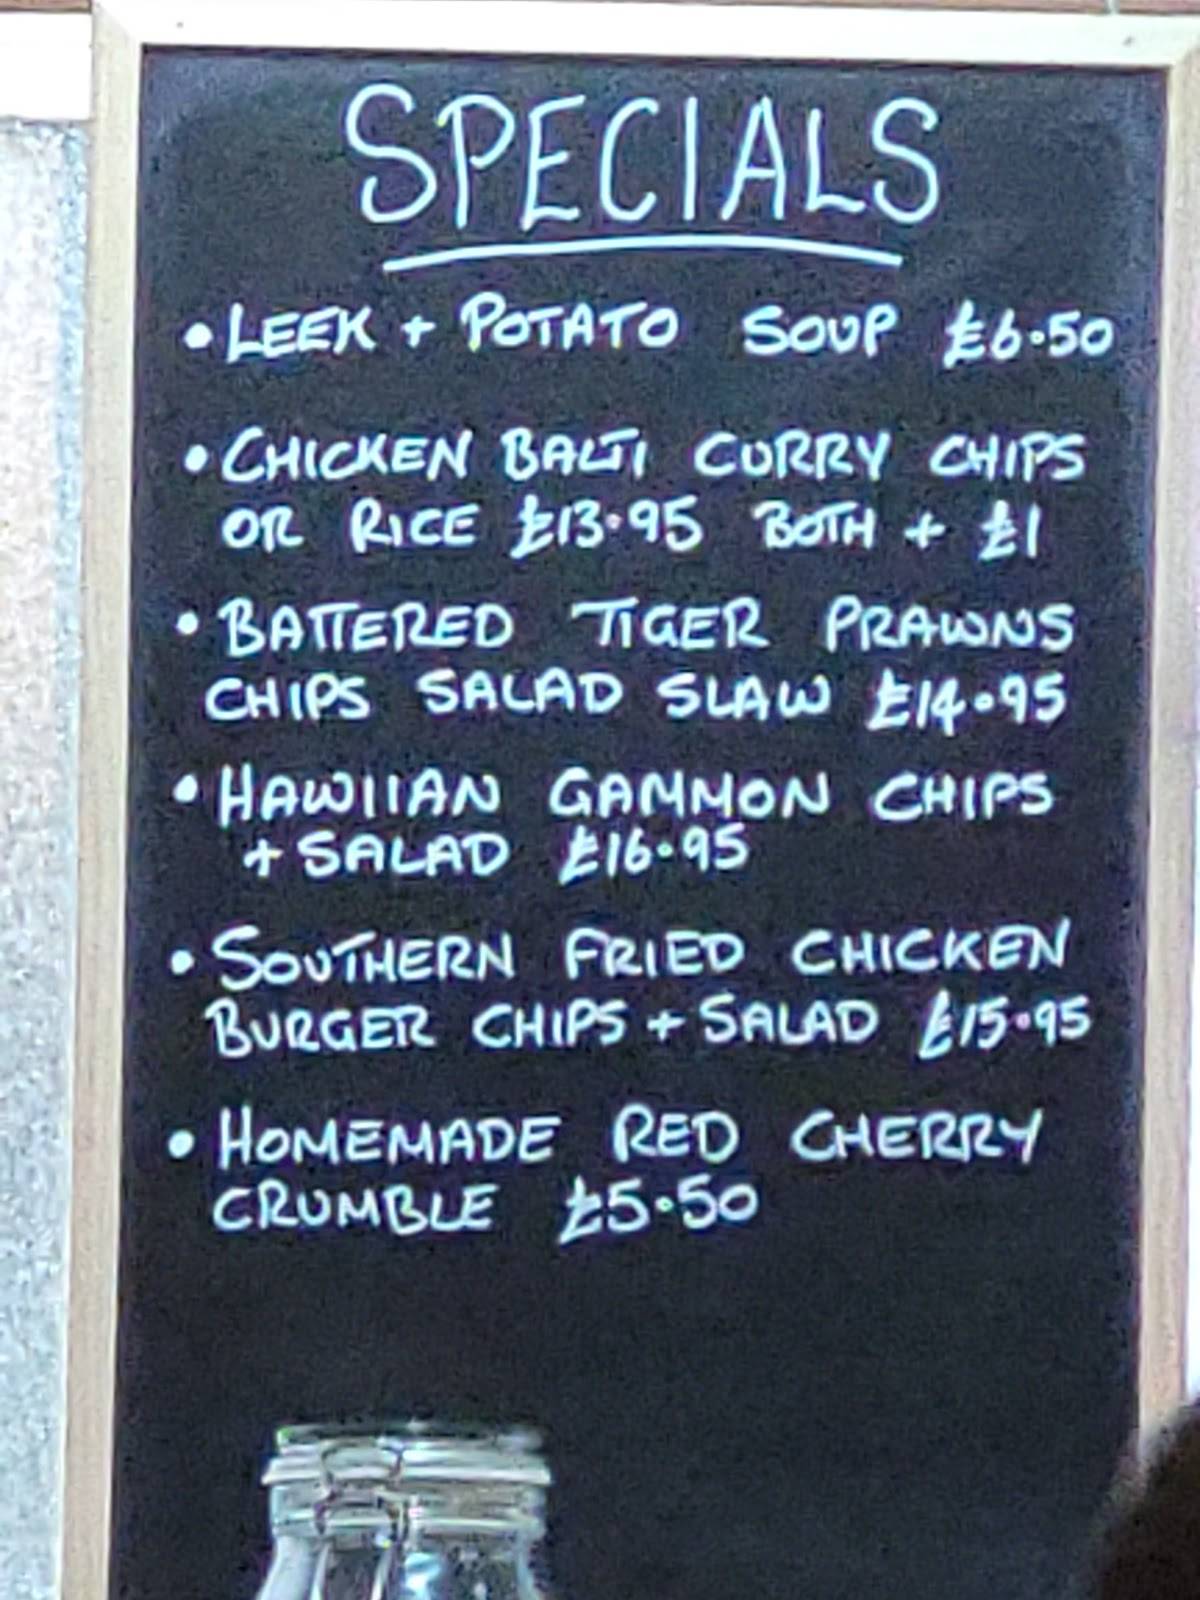 SPECIALS
• LEEK + POTATO SOUP £6.50
• CHICKEN BALTI CURRY CHIPS
OR RICE £13.95 BOTH + £1
• BATTERED TIGER PRAWNS
CHIPS SALAD SLAW £14.95
• HAWIIAN GAMMON CHIPS
+ SALAD £16.95
• SOUTHERN FRIED CHICKEN
BURGER CHIPS + SALAD £15.95
• HOMEMADE RED CHERRY
CRUMBLE £5.50